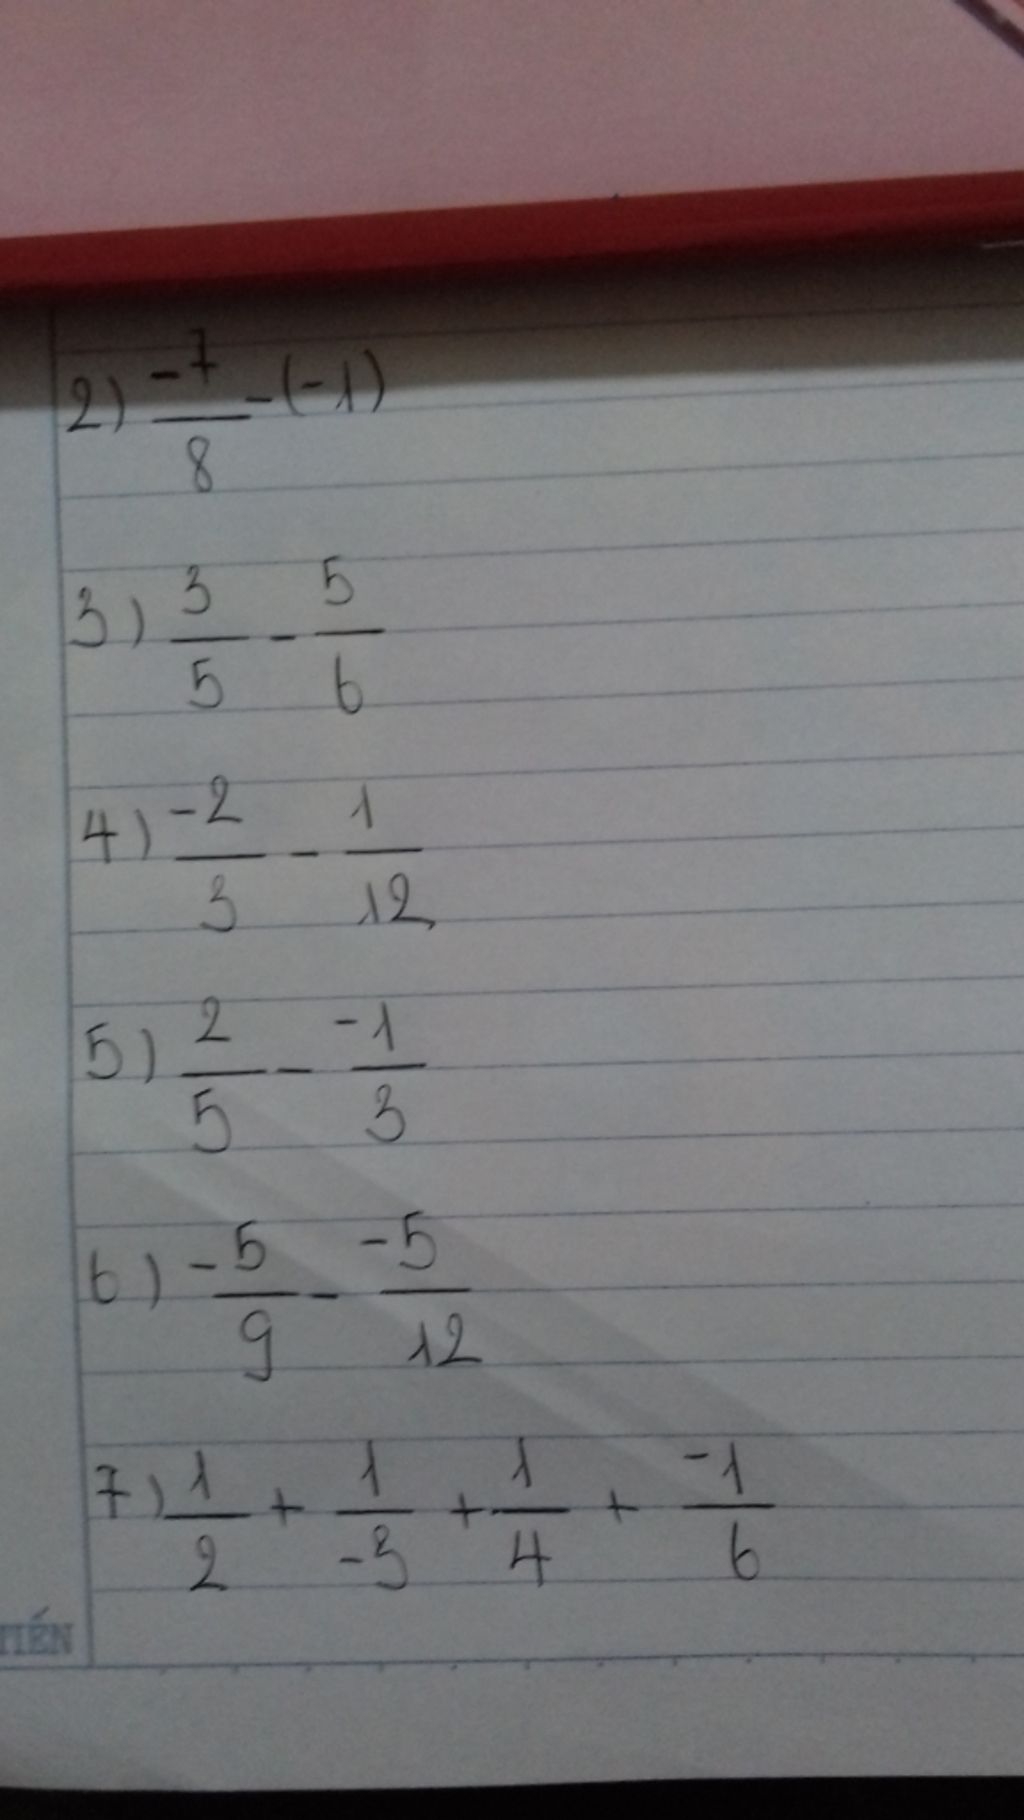 2) -7/8 - (-1)
3) 3/5 - 5/6
4) -2/3 - 1/12
5) 2/5 - -1/3
6) -5/9 - -5/12
7) 1/2 + 1/-3 + 1/4 + -1/6
TIẾN